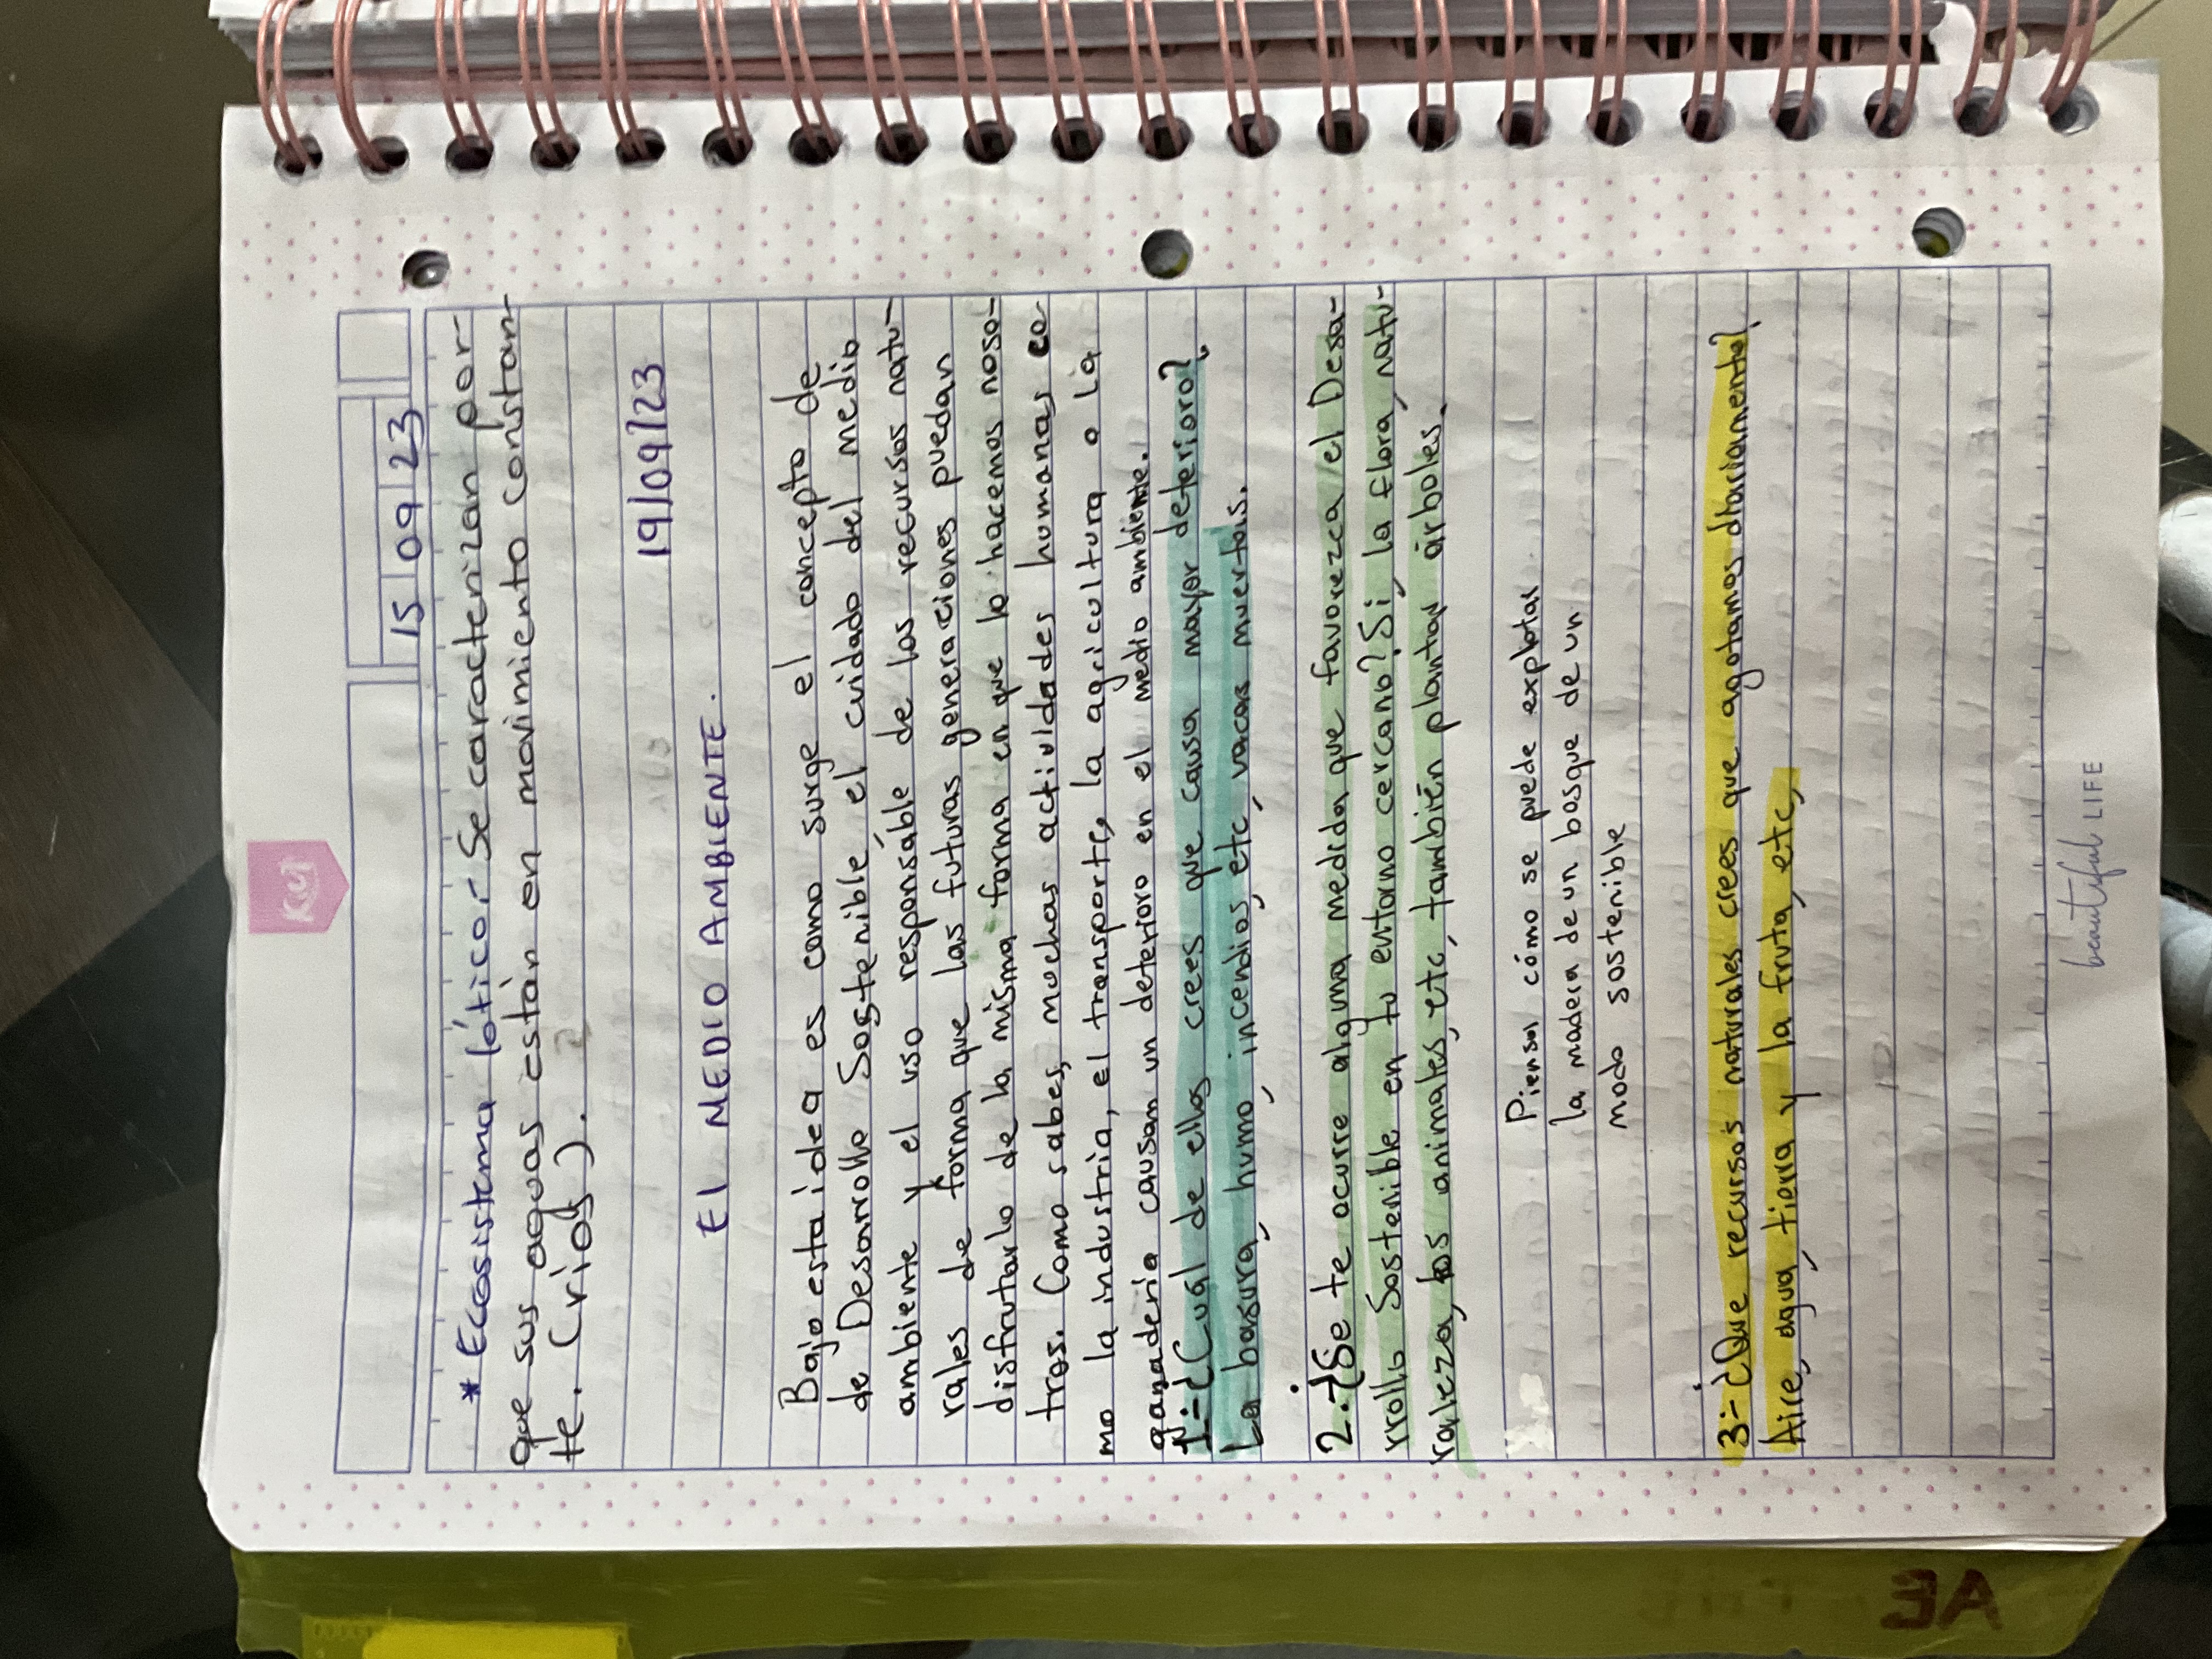 Kiut
15 09 23
* Ecosistema lótico:- Se caracterizan por-
que sus aguas están en movimiento constan-
te. (ríos).
19/09/23
El MEDIO AMBIENTE.
Bajo esta idea es como surge el concepto de
de Desarrollo Sostenible el cuidado del medio
ambiente y el uso responsable de los recursos natu-
rales de forma que las futuras generaciones puedan
disfrutarlo de la misma forma en que lo hacemos noso-
tros. Como sabes, muchas actividades humanas co
mo la industria, el transporte, la agricultura o la
ganadería causan un deterioro en el medio ambiente.
1:-¿Cual de ellos crees que causa mayor deterioro?
La basura, humo, incendios, etc, vacas muertas.
2.-¿Se te ocurre alguna medida que favorezca el Desa-
rrollo Sostenible en tu entorno cercano? Si, la flora, natu-
raleza, los animales, etc, también plantar árboles.
Piensa cómo se puede explotar
la madera de un bosque de un
modo sostenible
3:-¿Que recursos naturales crees que agotamos diariamente?
Aire, agua, tierra y la fruta, etc,
beautiful LIFE
AE